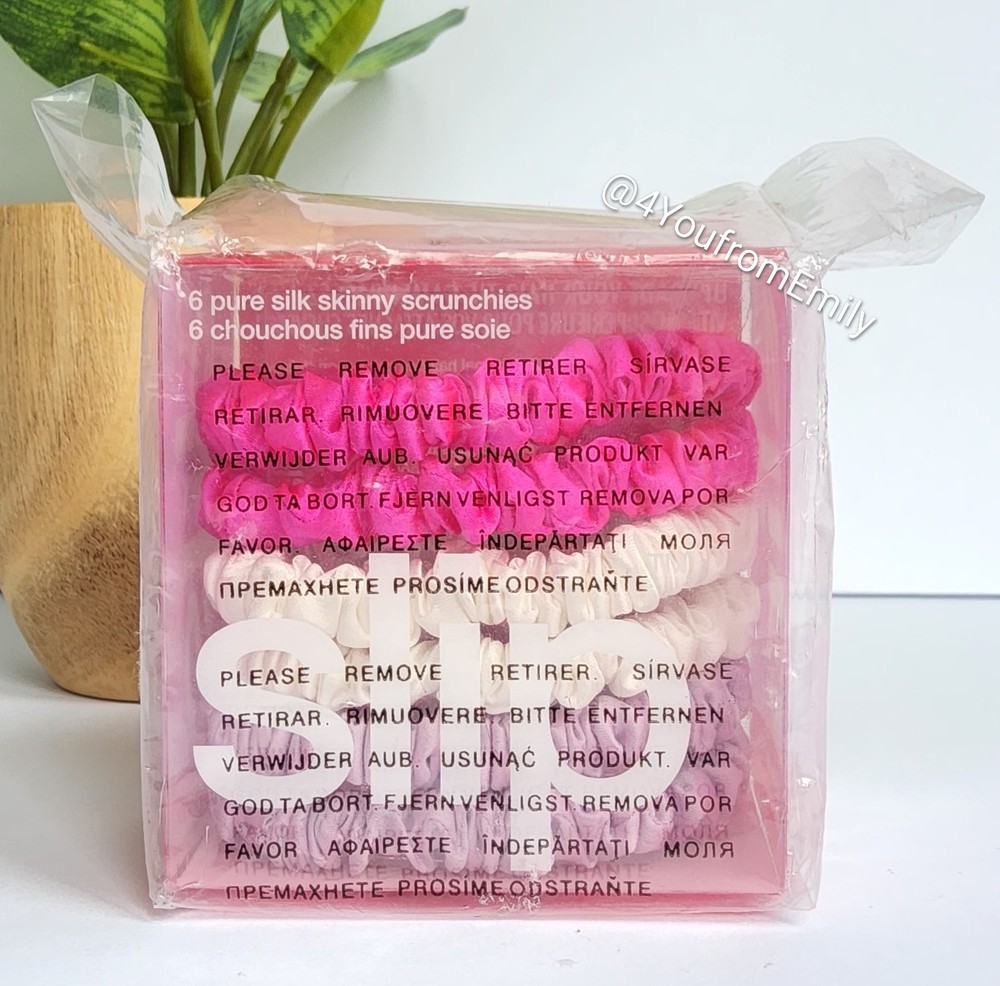 @4YoufromEmily
6 pure silk skinny scrunchies
6 chouchous fins pure soie
PLEASE REMOVE RETIRER SÍRVASE
RETIRAR. RIMUOVERE BITTE ENTFERNEN
VERWIJDER AUB. USUŃĄĆ PRODUKT VAR
GOD TA BORT. FJERN VENLIGST REMOVA POR
FAVOR. ΑΦΑΙΡΕΣΤΕ ÎNDEPĂRTAŢI МОЛЯ
ПРЕМАХНЕТЕ PROSÍME ODSTRAŇTE
slip
PLEASE REMOVE RETIRER. SÍRVASE
RETIRAR. RIMUOVERE BITTE ENTFERNEN
VERWIJDER AUB. USUŃĄĆ PRODUKT. VAR
GOD TA BORT. FJERN VENLIGST. REMOVA POR
FAVOR ΑΦΑΙΡΕΣΤΕ ÎNDEPĂRTAŢI МОЛЯ
ПРЕМАХНЕТЕ PROSÍME ODSTRAŇTE